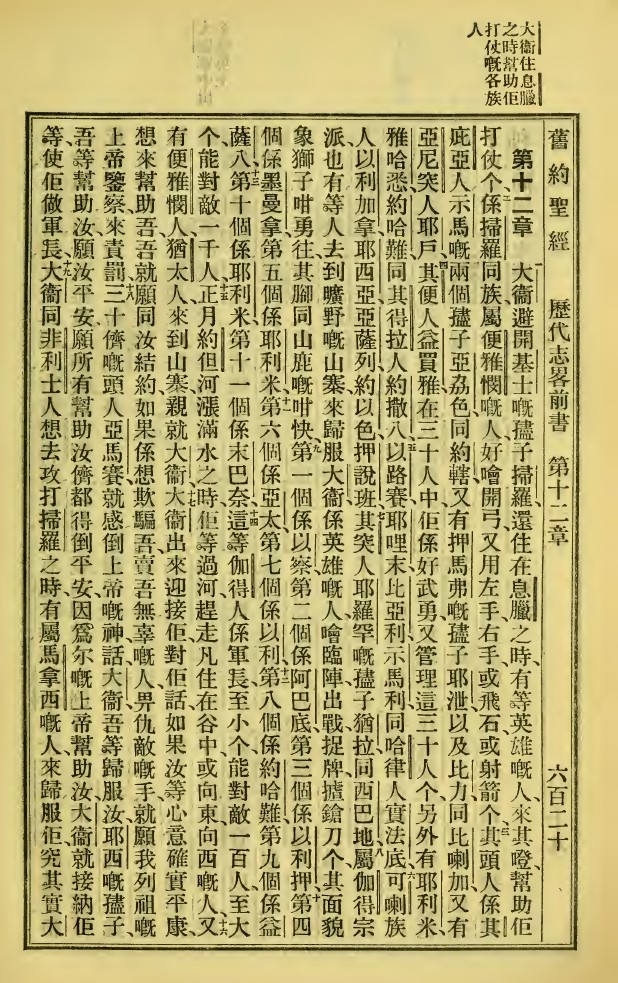 大衞住息臘
之時幫助佢
打仗嘅各族
人
舊約聖經 歷代志畧前書 第十二章 六百二十
第十二章 一大衞避開基士嘅孻子掃羅、還住在息臘之時、有等英雄嘅人、來其嶝幫助佢
打仗、二个係掃羅同族、屬便雅憫嘅人、好噲開弓、又用左手右手、或飛石、或射箭、三个其頭人係其
庇亞人示馬嘅兩個孻子、亞茘色同約轄、又有押馬弗嘅孻子、耶泄以及比力、同比喇加、又有
亞尼突人耶戶、四其便人益買雅、在三十人中、佢係好武勇、又管理這三十人个、另外有耶利米、
雅哈悉、約哈難、同其得拉人約撒八、五以路賽、耶哩末、比亞利、示馬利、同哈律人實法底、六可喇族
人以利加拿、耶西亞、亞薩列、約以色、押說班、七其突人耶羅罕嘅孻子猶拉、同西巴地、八屬伽得宗
派、也有等人去到曠野嘅山寨、來歸服大衞、係英雄嘅人、噲臨陣出戰、捉牌擄鎗刀个、其面貌
象獅子咁勇往、其腳同山鹿嘅咁快、九第一個係以察、第二個係阿巴底、第三個係以利押、十第四
個係墨曼拿、第五個係耶利米、十一第六個係亞太、第七個係以利、十二第八個係約哈難、第九個係益
薩八、十三第十個係耶利米、第十一個係末巴奈、十四這等伽得人係軍長、至小个能對敵一百人、至大
个能對敵一千人、十五正月約但河漲滿水之時、佢等過河、趕走凡住在谷中、或向東向西嘅人、十六又
有便雅憫人、猶太人、來到山寨、親就大衞、十七大衞出來迎接佢、對佢話、如果汝等心意確實平康、
想來幫助吾、吾就願同汝結約、如果係想欺騙吾、賣吾無辜嘅人、畀仇敵嘅手、就願我列祖嘅
上帝鑒察來責罰、十八三十儕嘅頭人亞馬賽、就感倒上帝嘅神話、大衞、吾等歸服汝、耶西嘅孻子、
吾等幫助汝、願汝平安、願所有幫助汝儕、都得倒平安、因爲尔嘅上帝幫助汝、大衞就接納佢
等、使佢做軍長、十九大衞同非利士人想去攻打掃羅之時、有屬馬拿西嘅人、來歸服佢、究其實大